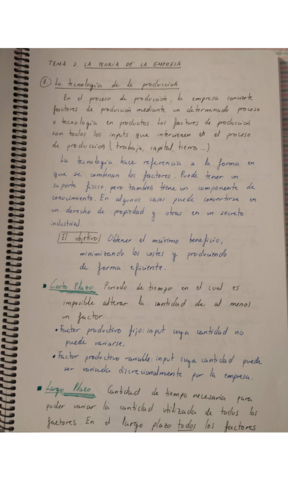 TEMA 2. LA TEORÍA DE LA EMPRESA
① La tecnología de la producción
En el proceso de producción, la empresa convierte
factores de producción mediante un determinado proceso
o tecnología en productos. Los factores de producción
son todos los inputs que intervienen en el proceso
de producción (trabajo, capital, tierra...)
La tecnología hace referencia a la forma en
que se combinan los factores. Puede tener un
soporte físico pero también tiene un componente de
conocimiento. En algunos casos puede convertirse en
un derecho de propiedad y otras en un secreto
industrial.
El objetivo: Obtener el máximo beneficio,
minimizando los costes y produciendo
de forma eficiente.
Corto Plazo: Periodo de tiempo en el cual es
imposible alterar la cantidad de al menos
un factor.
• Factor productivo fijo: input cuya cantidad no
puede variarse.
• Factor productivo variable: input cuya cantidad puede
ser variada discrecionalmente por la empresa.
Largo Plazo: Cantidad de tiempo necesaria para
poder variar la cantidad utilizada de todos los
factores. En el largo plazo todos los factores